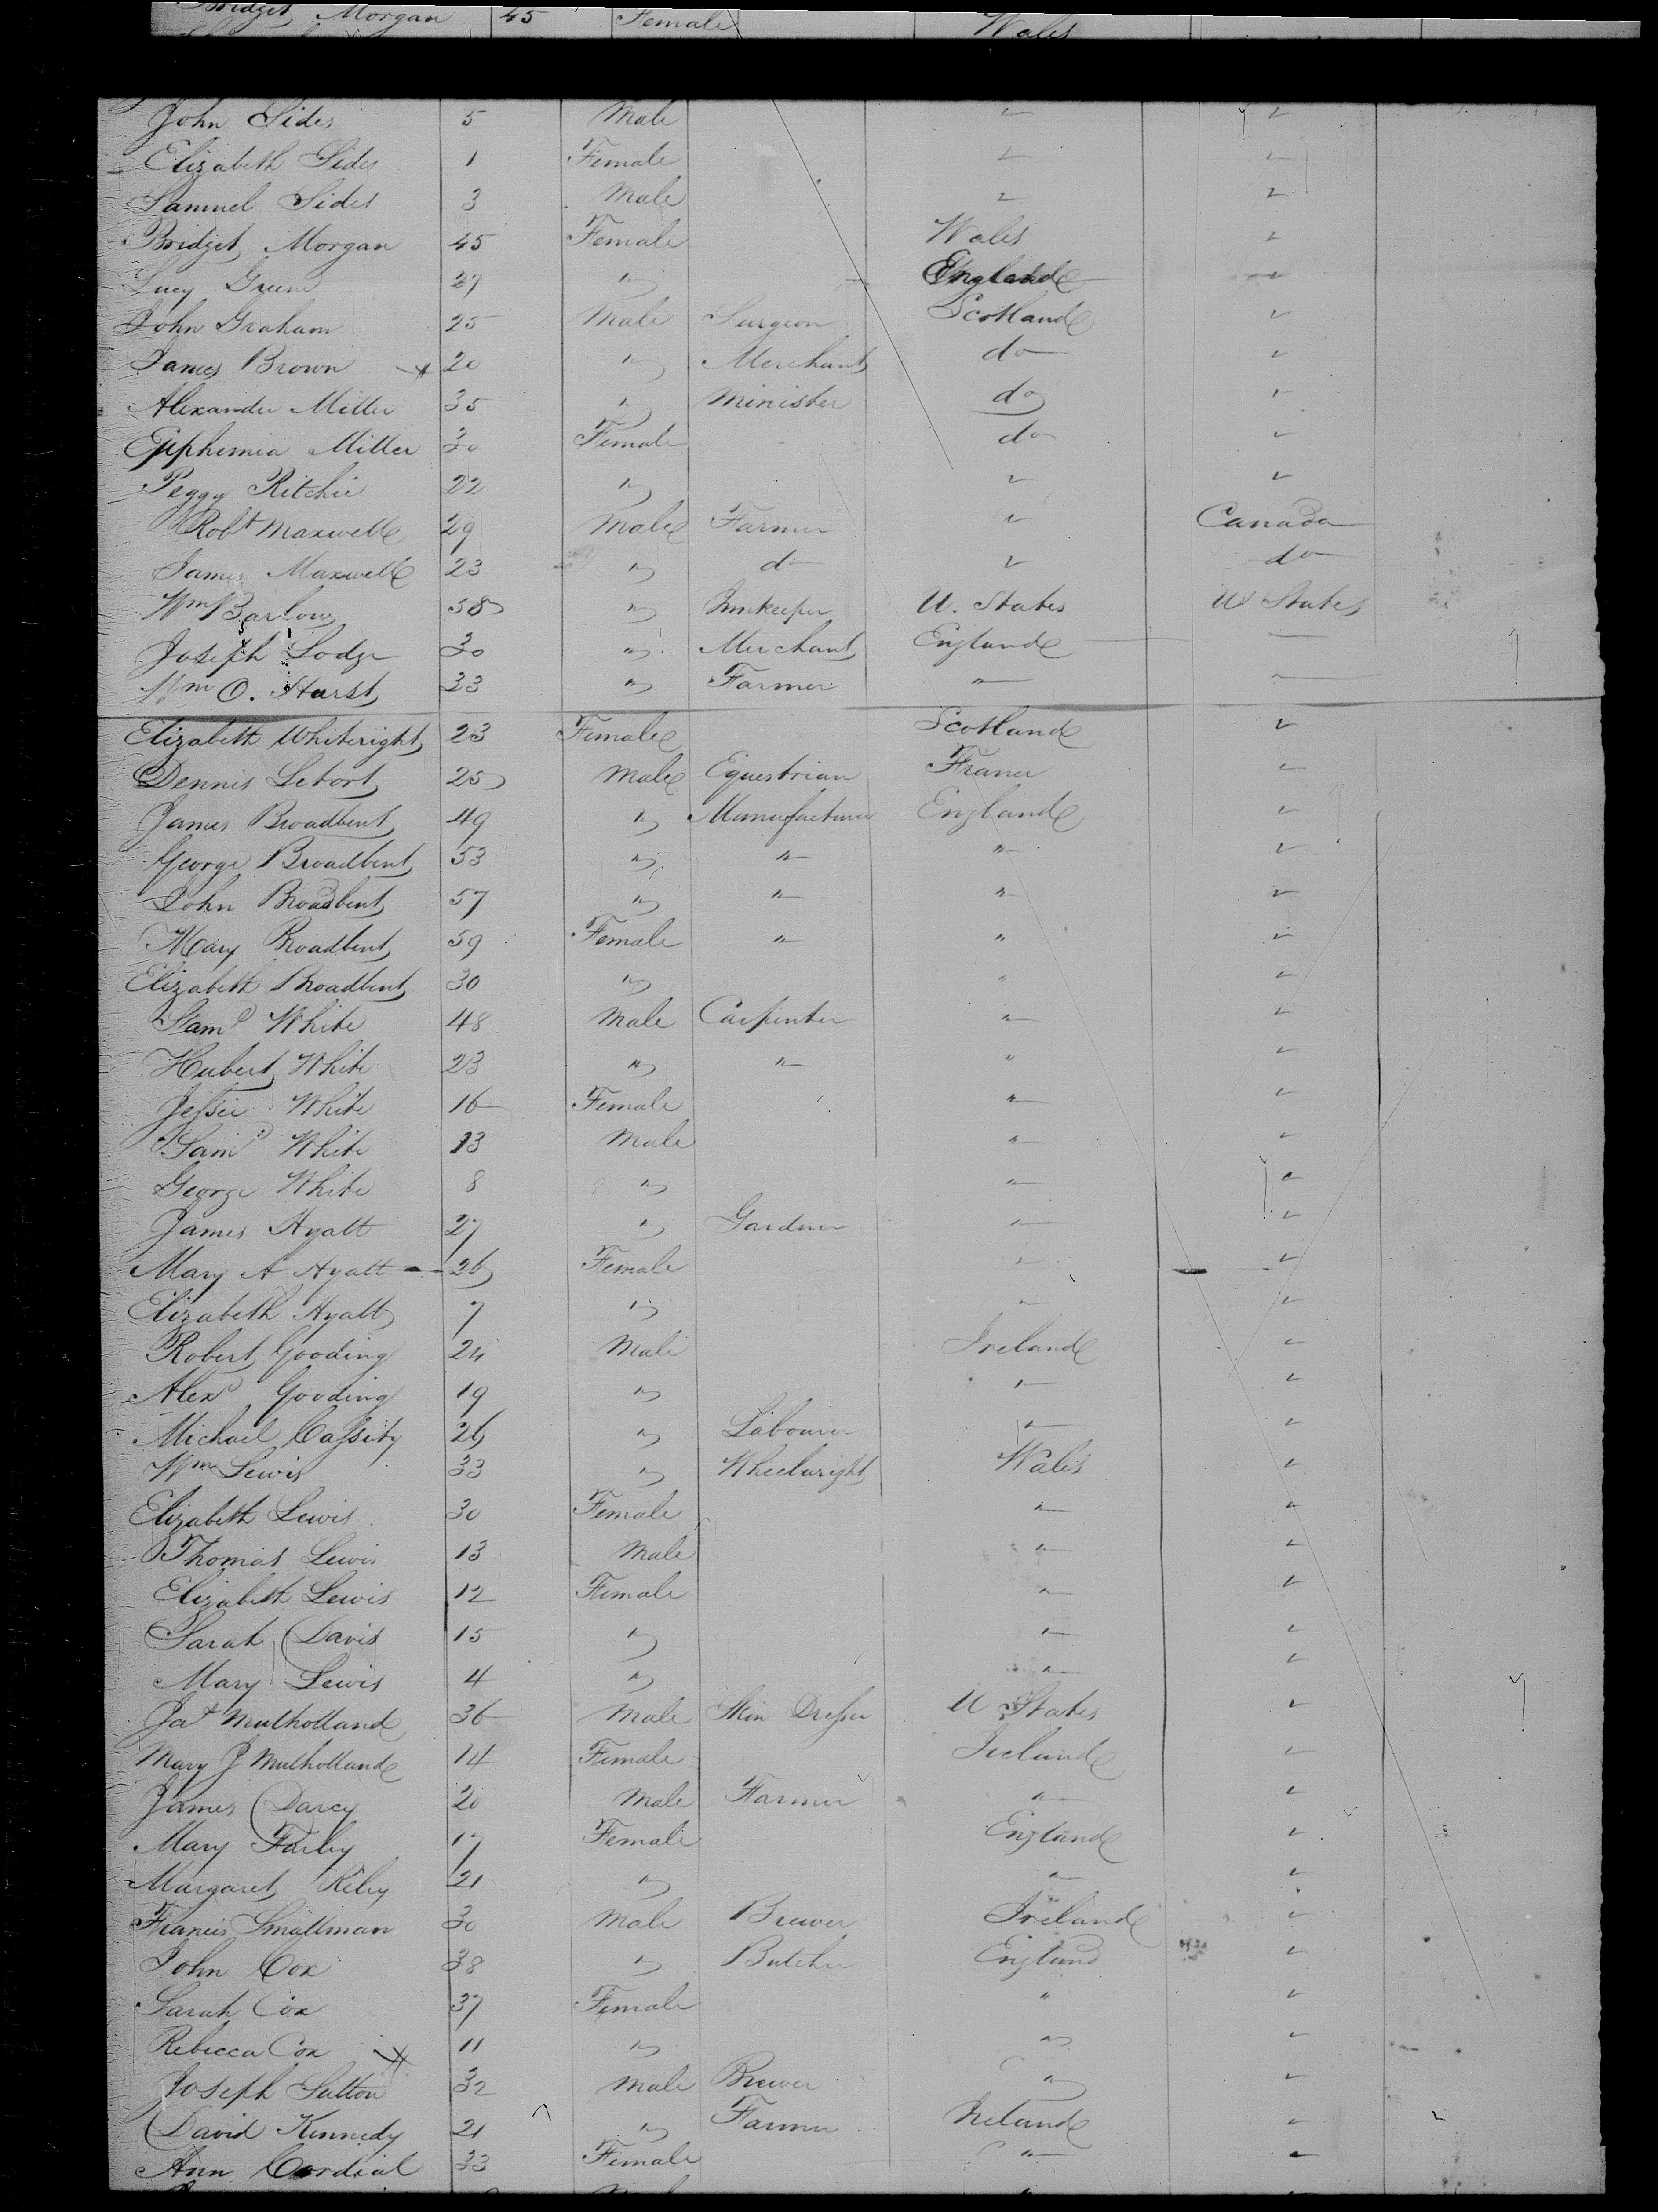 Bridget Morgan 45 Female Wales
John Sides 5 Male " "
Elizabeth Sides 1 Female " "
Samuel Sides 3 Male " "
Bridget Morgan 45 Female Wales "
Lucy Green 27 " England "
John Graham 25 Male Surgeon Scotland "
James Brown 20 " Merchant do "
Alexander Miller 35 " Minister do "
Epphemia Miller 30 Female do "
Peggy Ritchie 22 " " "
Robt Maxwell 29 Male Farmer " Canada
James Maxwell 23 " do " do
Wm Barlow 58 " Innkeeper U. States U States
Joseph Lodge 30 " Merchant England "
Wm O. Hurst 33 " Farmer " "
Elizabeth Whiteright 23 Female Scotland "
Dennis Letort 25 Male Equestrian France "
James Broadbent 49 " Manufacturer England "
George Broadbent 53 " " " "
John Broadbent 57 " " " "
Mary Broadbent 59 Female " " "
Elizabeth Broadbent 30 " " "
Saml White 48 Male Carpenter " "
Hubert White 23 " " " "
Jessie White 16 Female " "
Saml White 13 Male " "
George White 8 " " "
James Hyatt 27 " Gardner " "
Mary A Hyatt 26 Female " "
Elizabeth Hyatt 7 " " "
Robert Gooding 24 Male Ireland "
Alexr Gooding 19 " " "
Michael Cassity 26 " Labourer " "
Wm Lewis 33 " Wheelwright Wales "
Elizabeth Lewis 30 Female " "
Thomas Lewis 13 Male " "
Elizabeth Lewis 12 Female " "
Sarah Davis 15 " " "
Mary Lewis 4 " " "
Jas Mulholland 36 Male Skin Dresser U States "
Mary J Mulholland 14 Female Ireland "
James Darcy 20 Male Farmer " "
Mary Farley 17 Female England "
Margaret Riley 21 " " "
Francis Smallman 30 Male Brewer Ireland "
John Cox 38 " Butcher England "
Sarah Cox 37 Female " "
Rebecca Cox 11 " " "
Joseph Sutton 32 Male Brewer " "
David Kennedy 21 " Farmer Ireland "
Ann Cordial 33 Female " "